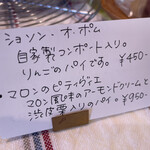 ショソン・オ・ポム
自家製コンポート入り。
りんごのパイです。¥450-
• マロンのピティヴィエ
マロン風味のアーモンドクリームと
渋皮栗入りのパイ。¥950-